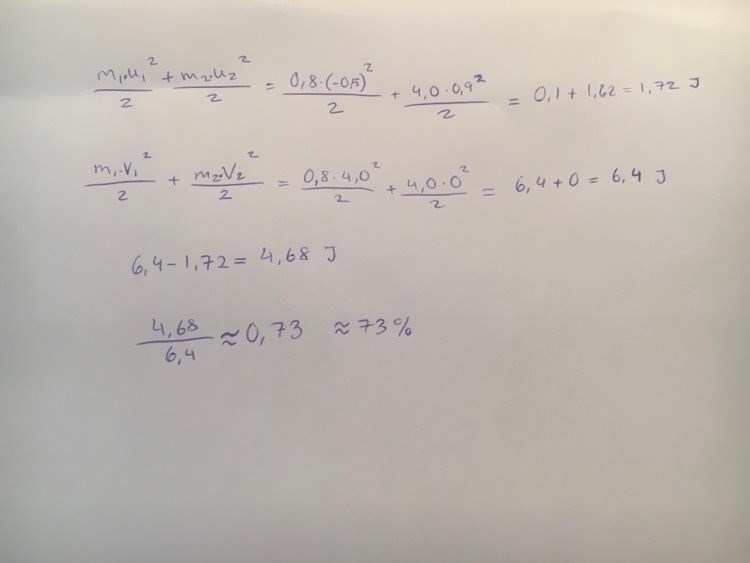 m₁·u₁²/2 + m₂·u₂²/2 = 0,8·(-0,5)²/2 + 4,0·0,9²/2 = 0,1 + 1,62 = 1,72 J
m₁·V₁²/2 + m₂·V₂²/2 = 0,8·4,0²/2 + 4,0·0²/2 = 6,4 + 0 = 6,4 J
6,4 - 1,72 = 4,68 J
4,68/6,4 ≈ 0,73 ≈ 73%